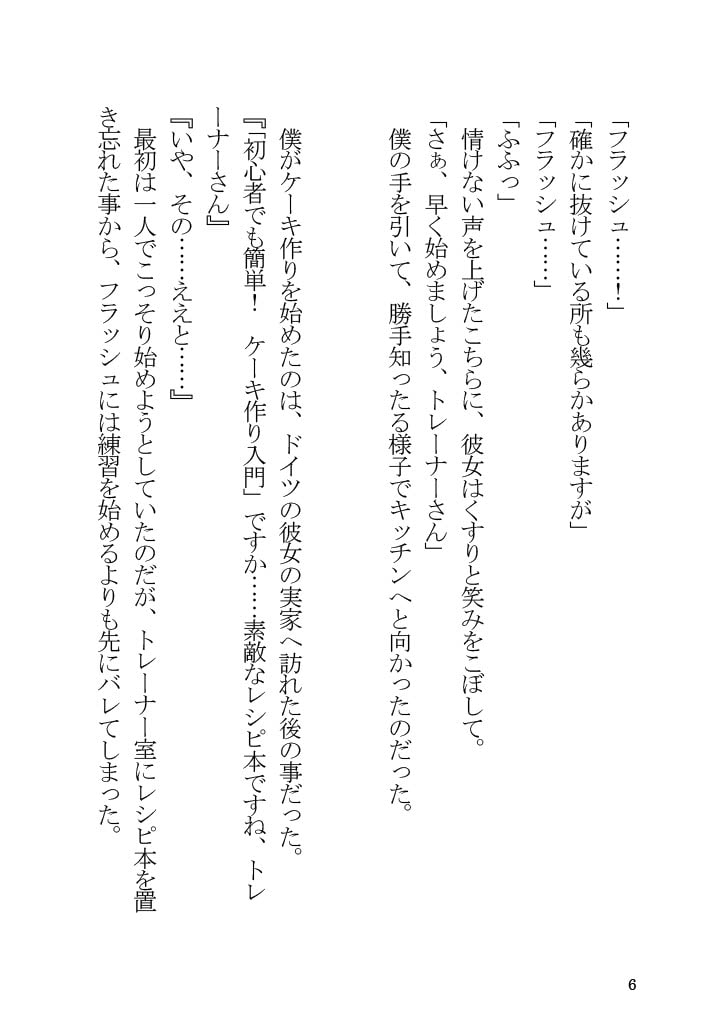 「フラッシュ……！」
「確かに抜けている所も幾らかありますが」
「フラッシュ……」
「ふふっ」
　情けない声を上げたこちらに、彼女はくすりと笑みをこぼして。
「さぁ、早く始めましょう、トレーナーさん」
　僕の手を引いて、勝手知ったる様子でキッチンへと向かったのだった。
　僕がケーキ作りを始めたのは、ドイツの彼女の実家へ訪れた後の事だった。
『「初心者でも簡単！　ケーキ作り入門」ですか……素敵なレシピ本ですね、トレ
ーナーさん』
『いや、その……ええと……』
　最初は一人でこっそり始めようとしていたのだが、トレーナー室にレシピ本を置
き忘れた事から、フラッシュには練習を始めるよりも先にバレてしまった。
6